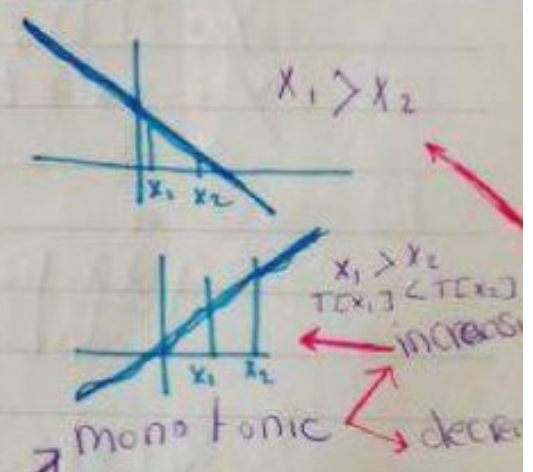 x₁ > x₂
x₁ x₂
x₁ > x₂
T[x₁] < T[x₂]
increasi
x₁ x₂
monotonic
decre